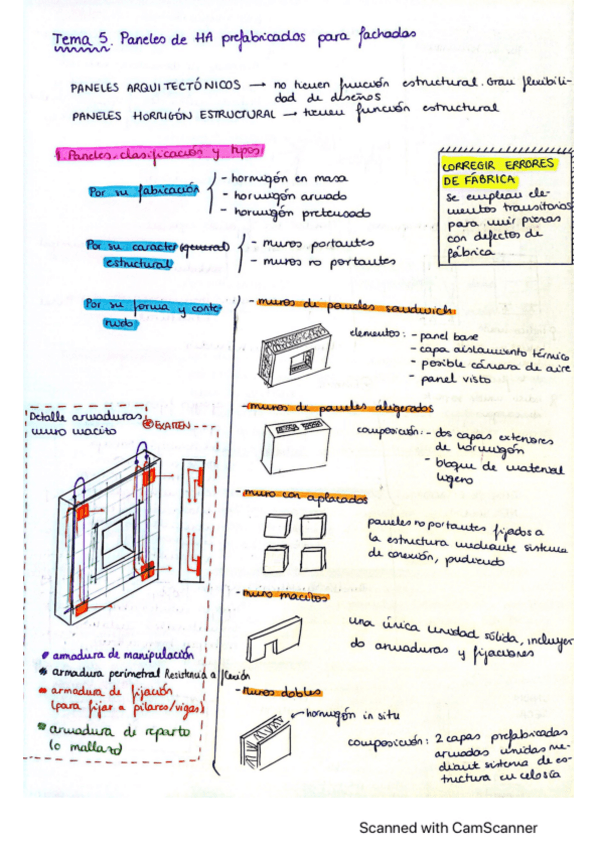 Tema 5. Paneles de HA prefabricados para fachadas
PANELES ARQUITECTÓNICOS → no tienen función estructural. Gran flexibili-
dad de diseños
PANELES HORMIGÓN ESTRUCTURAL → tienen función estructural
1. Paneles, clasificación y tipos
Por su fabricación
- hormigón en masa
- hormigón armado
- hormigón pretensado
CORREGIR ERRORES
DE FÁBRICA
Se emplean ele-
mentos transitorios
para unir piezas
con defectos de
fábrica
Por su caracter (general)
estructural
- muros portantes
- muros no portantes
Por su forma y conte-
nido
- muros de paneles sandwich
elementos: - panel base
- capa aislamiento térmico
- posible cámara de aire
- panel visto
- muros de paneles aligerados
composición: - dos capas exteriores
de hormigón
- bloque de material
ligero
- muro con aplacados
paneles no portantes fijados a
la estructura mediante sistema
de conexión, pudiendo
- muro macizos
una única unidad sólida, incluyen
do armaduras y fijaciones
- muros dobles
hormigón in situ
composición: 2 capas prefabricadas
armadas unidas me-
diante sistema de es-
tructura en celosía
Detalle armaduras
muro macizo
EXAMEN
armadura de manipulación
armadura perimetral Resistencia a flexión
armadura de fijación
(para fijar a pilares/vigas)
armadura de reparto
(o mallazo)
Scanned with CamScanner